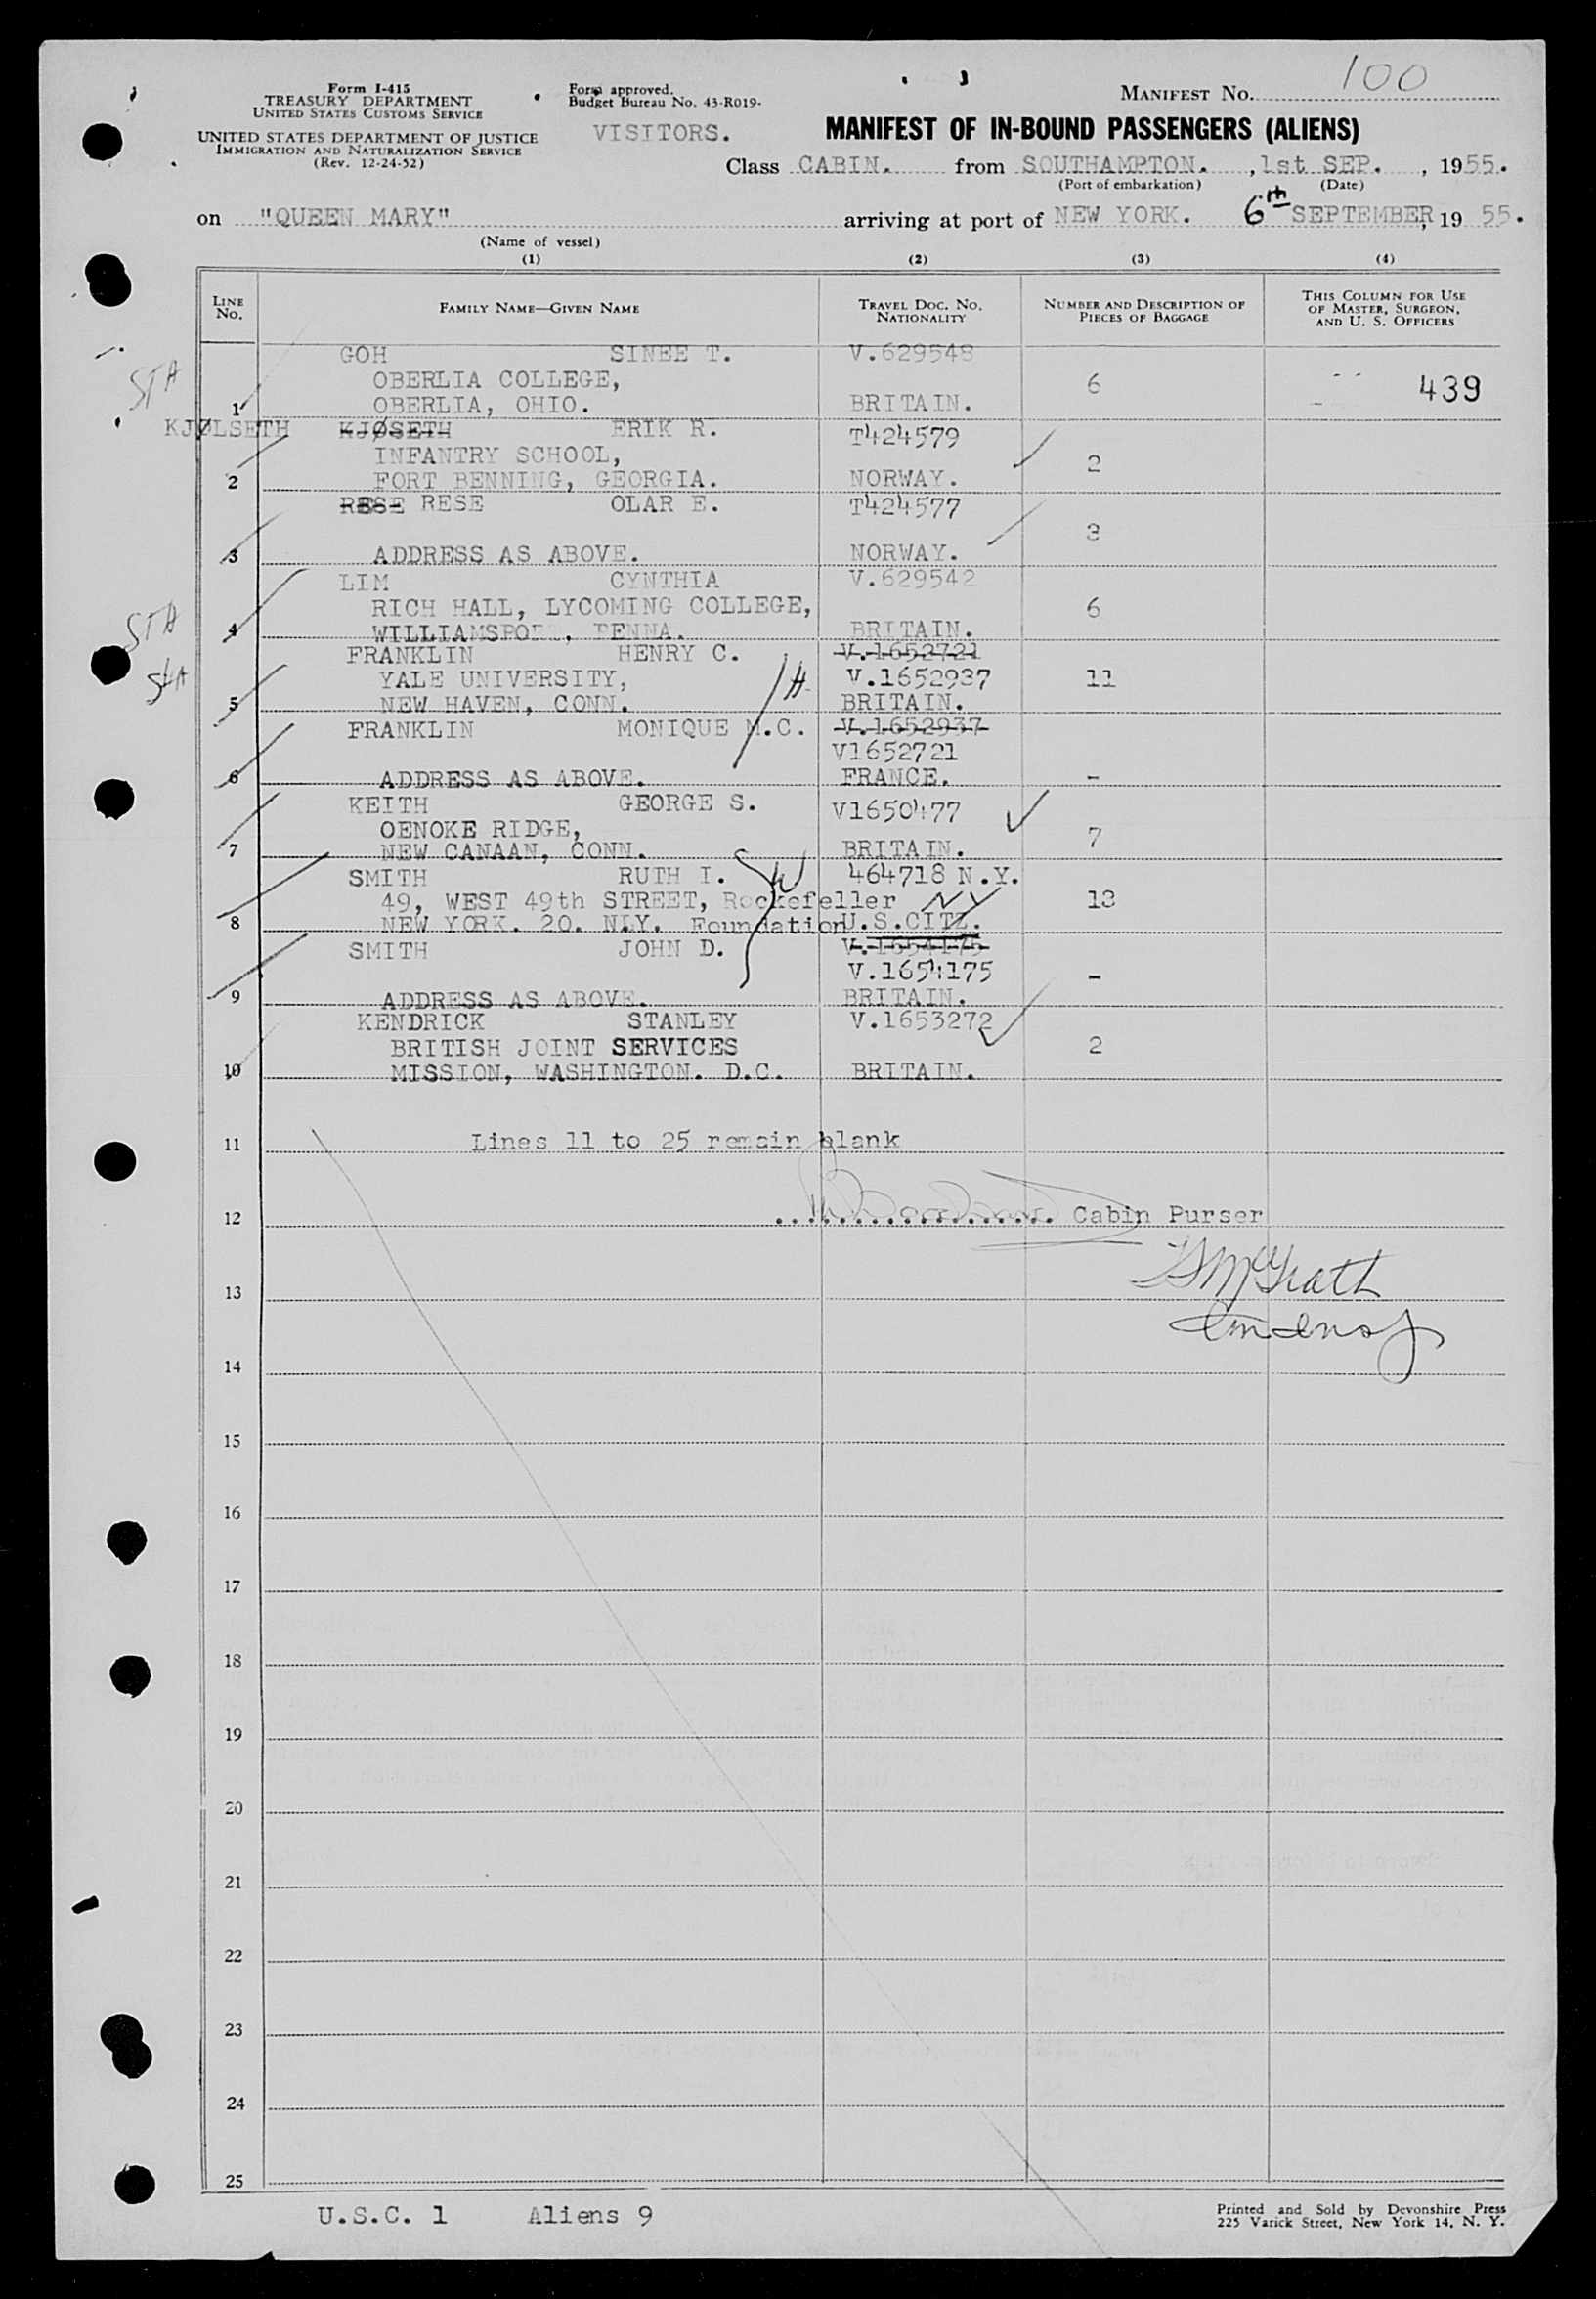 100
Form I-415
TREASURY DEPARTMENT
UNITED STATES CUSTOMS SERVICE
UNITED STATES DEPARTMENT OF JUSTICE
IMMIGRATION AND NATURALIZATION SERVICE
(Rev. 12-24-52)
Form approved.
Budget Bureau No. 43-R019.
VISITORS.
MANIFEST NO.
MANIFEST OF IN-BOUND PASSENGERS (ALIENS)
Class CABIN. from SOUTHAMPTON. , 1st SEP. , 1955.
(Port of embarkation) (Date)
on "QUEEN MARY" arriving at port of NEW YORK. 6th SEPTEMBER, 19 55.
(Name of vessel)
(1) (2) (3) (4)
LINE NO.
FAMILY NAME—GIVEN NAME
TRAVEL DOC. NO. NATIONALITY
NUMBER AND DESCRIPTION OF PIECES OF BAGGAGE
THIS COLUMN FOR USE OF MASTER, SURGEON, AND U. S. OFFICERS
GOH SINEE T. V.629548
STA OBERLIA COLLEGE, 6 439
1 OBERLIA, OHIO. BRITAIN.
KJØLSETH KJØSETH ERIK R. T424579
INFANTRY SCHOOL, 2
2 FORT BENNING, GEORGIA. NORWAY.
RESE OLAR E. T424577
3
3 ADDRESS AS ABOVE. NORWAY.
LIM CYNTHIA V.629542
RICH HALL, LYCOMING COLLEGE, 6
STA 4 WILLIAMSPORT, PENNA. BRITAIN.
FRANKLIN HENRY C. V.1652721
StA YALE UNIVERSITY, V.1652937 11
5 NEW HAVEN, CONN. BRITAIN.
FRANKLIN MONIQUE M.C. V.1652937
V1652721
6 ADDRESS AS ABOVE. FRANCE. -
KEITH GEORGE S. V1650477
OENOKE RIDGE, 7
7 NEW CANAAN, CONN. BRITAIN.
SMITH RUTH I. 464718 N.Y.
49, WEST 49th STREET, Rockefeller NY 13
8 NEW YORK. 20. N.Y. Foundation U.S.CITZ.
SMITH JOHN D. V.1654175
V.1654175 -
9 ADDRESS AS ABOVE. BRITAIN.
KENDRICK STANLEY V.1653272
BRITISH JOINT SERVICES 2
10 MISSION, WASHINGTON. D.C. BRITAIN.
11 Lines 11 to 25 remain blank
12 Cabin Purser
McGrath
13
14
15
16
17
18
19
20
21
22
23
24
25
U.S.C. 1 Aliens 9
Printed and Sold by Devonshire Press
225 Varick Street, New York 14, N. Y.